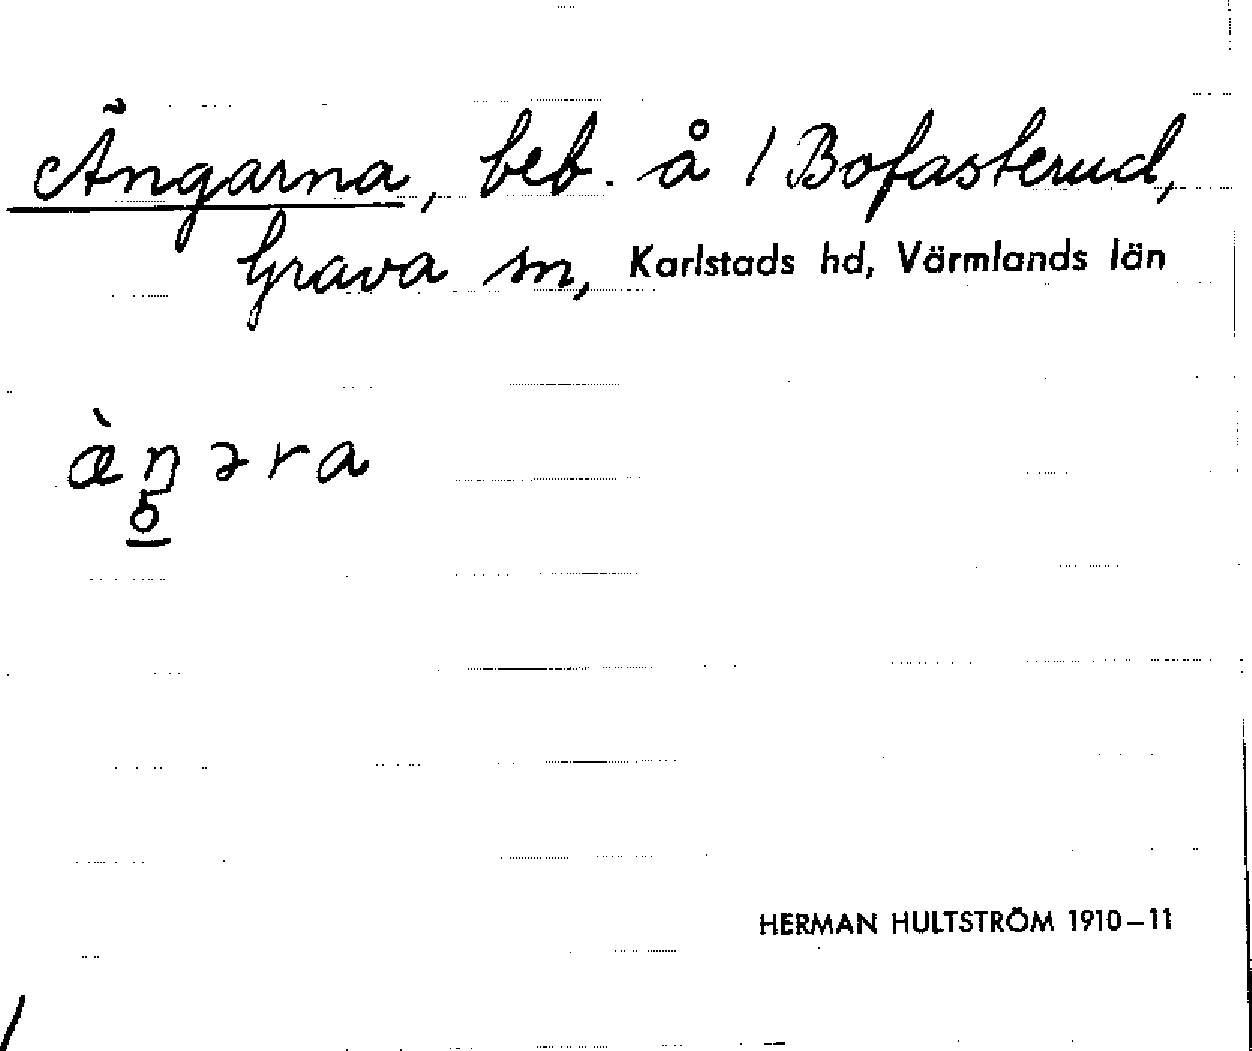 Ängarna, beb. å 1 Bofasterud,
Grava sn, Karlstads hd, Värmlands län
æ̀ŋəra
HERMAN HULTSTRÖM 1910–11